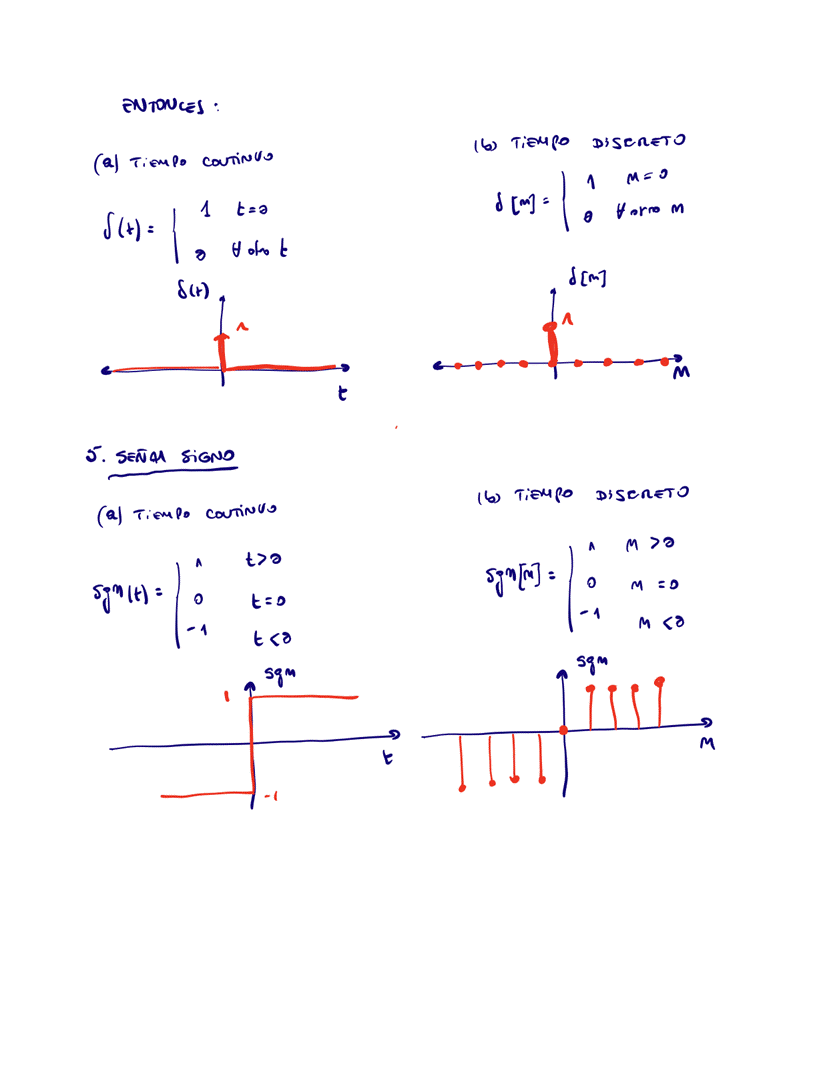 ENTONCES:
(a) TIEMPO CONTINUO
δ(t) =
1 t=0
0 ∀ otro t
δ(t)
1
t
(b) TIEMPO DISCRETO
δ[n] =
1 n=0
0 ∀ otro n
δ[n]
1
n
5. SEÑAL SIGNO
(a) TIEMPO CONTINUO
sgn(t) =
1 t>0
0 t=0
-1 t<0
sgn
1
-1
t
(b) TIEMPO DISCRETO
sgn[n] =
1 n>0
0 n=0
-1 n<0
sgn
n